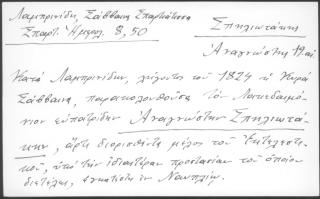 Λαμπρινίδη, Σάββαινα Σπαρτιάτισσα
Σπαρτ. Ἡμερολ. 8, 50
Σπηλιωτάκης
Ἀναγνώστης
Κατὰ Λαμπρινίδην, λήγοντος τοῦ 1824 ἡ Κυρά
Σάββαινα, παρακολουθοῦσα τὸν Λακεδαιμό-
νιον εὐπατρίδην Ἀναγνώστην Σπηλιωτά-
κην, ἄρτι διορισθέντα μέλος τοῦ Ἐκτελεστι-
κοῦ, ὑπὸ τὴν ἰδιαιτέραν προστασίαν τοῦ ὁποίου
διετέλει, ἐγκατέστη ἐν Ναυπλίῳ.